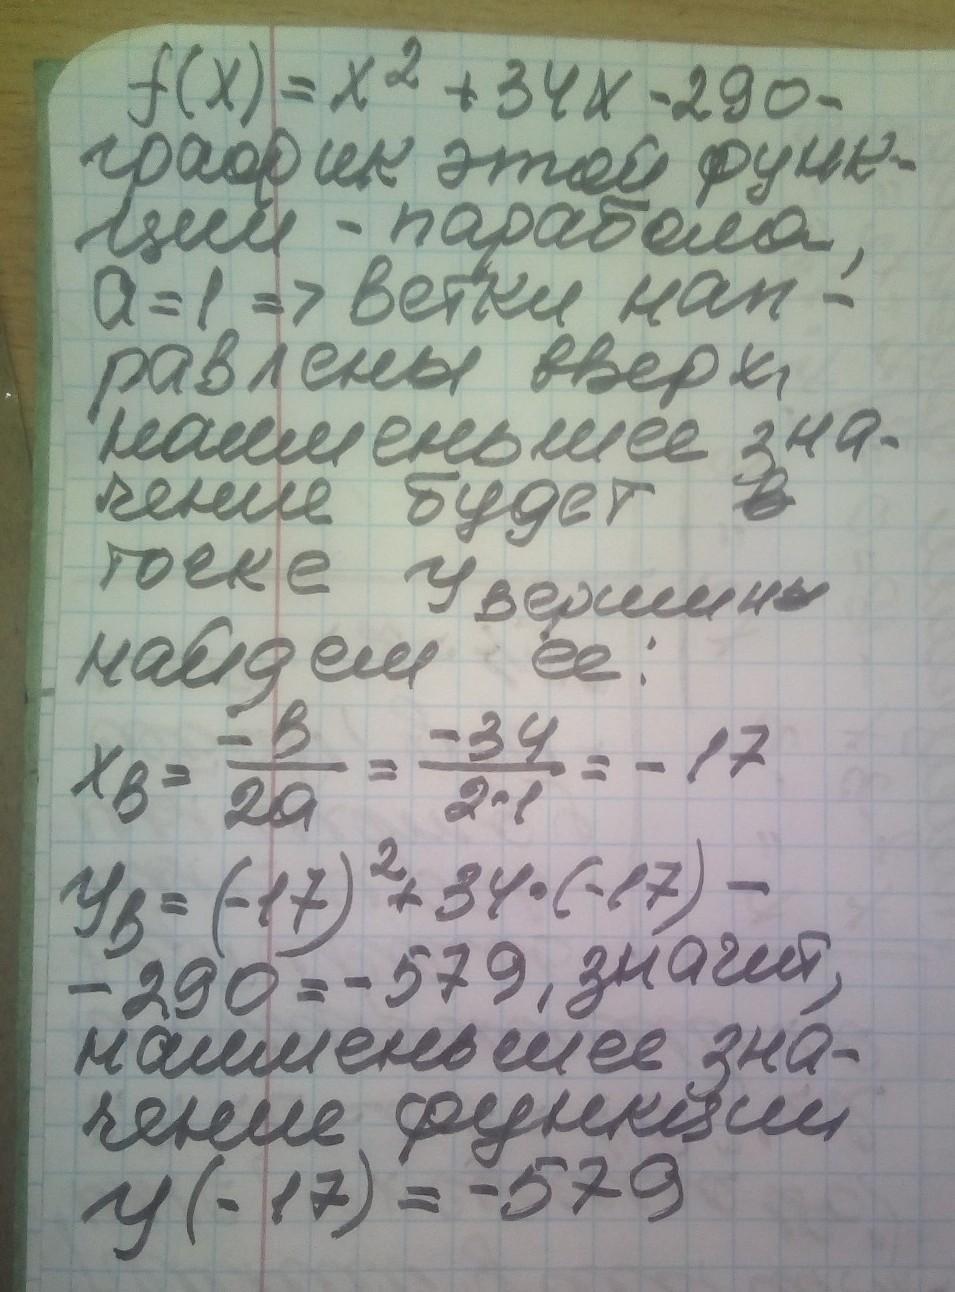 f(x) = x² + 34x - 290 -
график этой функ-
ции - парабола,
a = 1 => ветки нап -
равлены вверх,
наименьшее зна-
чение будет в
точке y вершины
найдем ее:
xв = -в/2a = -34/2·1 = - 17
yв = (-17)² + 34·(-17) -
- 290 = -579, значит,
наименьшее зна-
чение функции
y(-17) = -579